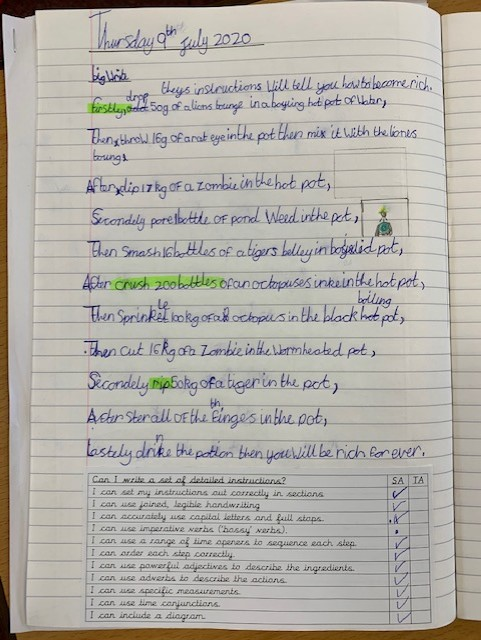 Thursday 9th July 2020
big Write
theys instructions Will tell you how to become rich.
firstly, drop 50g of a lions tounge in a boyling hot pot of Water,
Then, throw 16g of a rat eye in the pot then mix it With the lions
toung.
After, dip 17kg of a zombie in the hot pot,
Secondely pore 1 bottle of pond Weed in the pot,
Then Smash 16 bottles of a tigers belley in the pot,
After crush 200 bottles of an octopuses inke in the hot pot,
boiling
Then Sprinkle 100kg of a octopus in the black hot pot,
Then cut 16kg of a Zombie in the Wormheated pot,
Secondely rip 50kg of a tiger in the pot,
After ster all of the thinges in the pot,
Lastely drinke the potion then you Will be rich for ever.
Can I write a set of detailed instructions? SA TA
I can set my instructions out correctly in sections.
I can use joined, legible handwriting
I can accurately use capital letters and full stops.
I can use imperative verbs ('bossy' verbs).
I can use a range of time openers to sequence each step.
I can order each step correctly.
I can use powerful adjectives to describe the ingredients.
I can use adverbs to describe the actions.
I can use specific measurements.
I can use time conjunctions.
I can include a diagram.